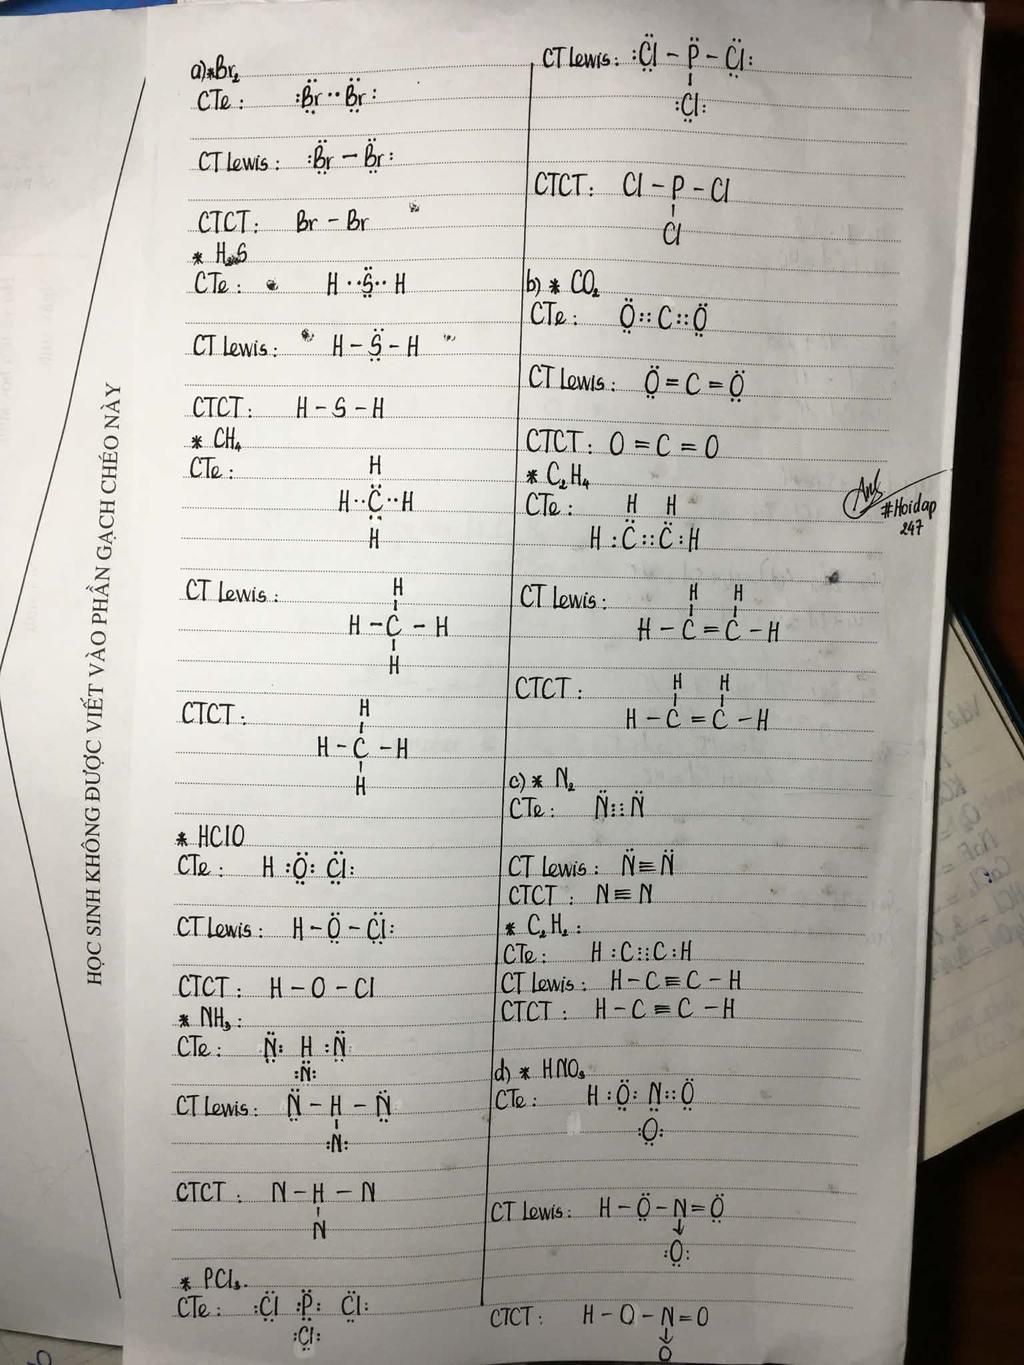 HỌC SINH KHÔNG ĐƯỢC VIẾT VÀO PHẦN GẠCH CHÉO NÀY
a) * Br₂
CTe : :B̤̈r ·· B̤̈r :
CT Lewis : :B̤̈r – B̤̈r :
CTCT : Br – Br
* H₂S
CTe : H ·· S̤̈ ·· H
CT Lewis : H – S̤̈ – H
CTCT : H – S – H
* CH₄
CTe :
H
H ·· C̤̈ ·· H
H
CT Lewis :
H
H – C – H
H
CTCT :
H
H – C – H
H
* HClO
CTe : H :Ö̤: C̤̈l:
CT Lewis : H – Ö̤ – C̤̈l:
CTCT : H – O – Cl
* NH₃ :
CTe : N̤̈: H :N̤̈
:N̤:
CT Lewis : N̤̈ – H – N̤̈
:N̤:
CTCT : N – H – N
N
* PCl₃.
CTe : :C̤̈l :P̈: C̤̈l:
:C̤̈l:
CT Lewis : :C̤̈l – P̈ – C̤̈l:
:C̤̈l:
CTCT : Cl – P – Cl
Cl
b) * CO₂
CTe : Ö̤ :: C :: Ö̤
CT Lewis : Ö̤ = C = Ö̤
CTCT : O = C = O
* C₂H₄
CTe :
H H
H : C̈ :: C̈ : H
CT Lewis :
H H
H – C = C – H
CTCT :
H H
H – C = C – H
c) * N₂
CTe : N̈ ⫶⫶ N̈
CT Lewis : N̈ ≡ N̈
CTCT : N ≡ N
* C₂H₂ :
CTe : H : C ⫶⫶ C : H
CT Lewis : H – C ≡ C – H
CTCT : H – C ≡ C – H
d) * HNO₃
CTe : H :Ö̤: N̈ :: Ö̤
:Ö̤:
CT Lewis : H – Ö̤ – N = Ö̤
↓
:Ö̤:
CTCT : H – O – N = O
↓
O
#Hoidap
247